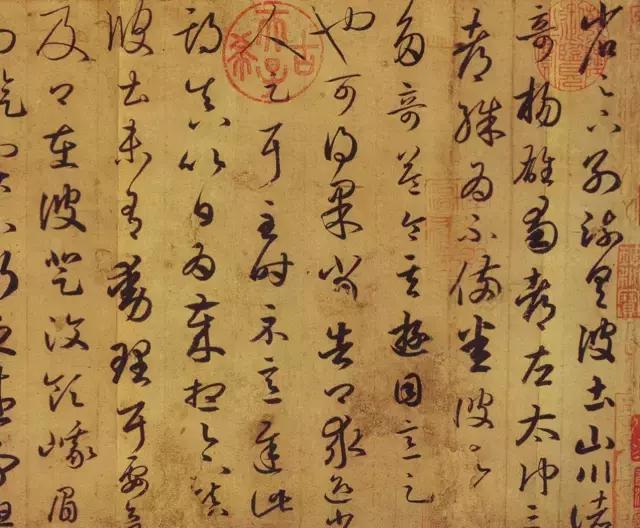 省足下別疏具彼土山川諸
奇楊雄蜀都左太沖三
都殊為不備悉彼故
多奇益令其遊目意足
也可得果當告卿求迎少
人足耳至時示意遲此
期真以日為歲想足下鎮
彼土未有動理耳要欲
及卿在彼登汶領峨眉
而旋實不朽之盛事但
古希天子